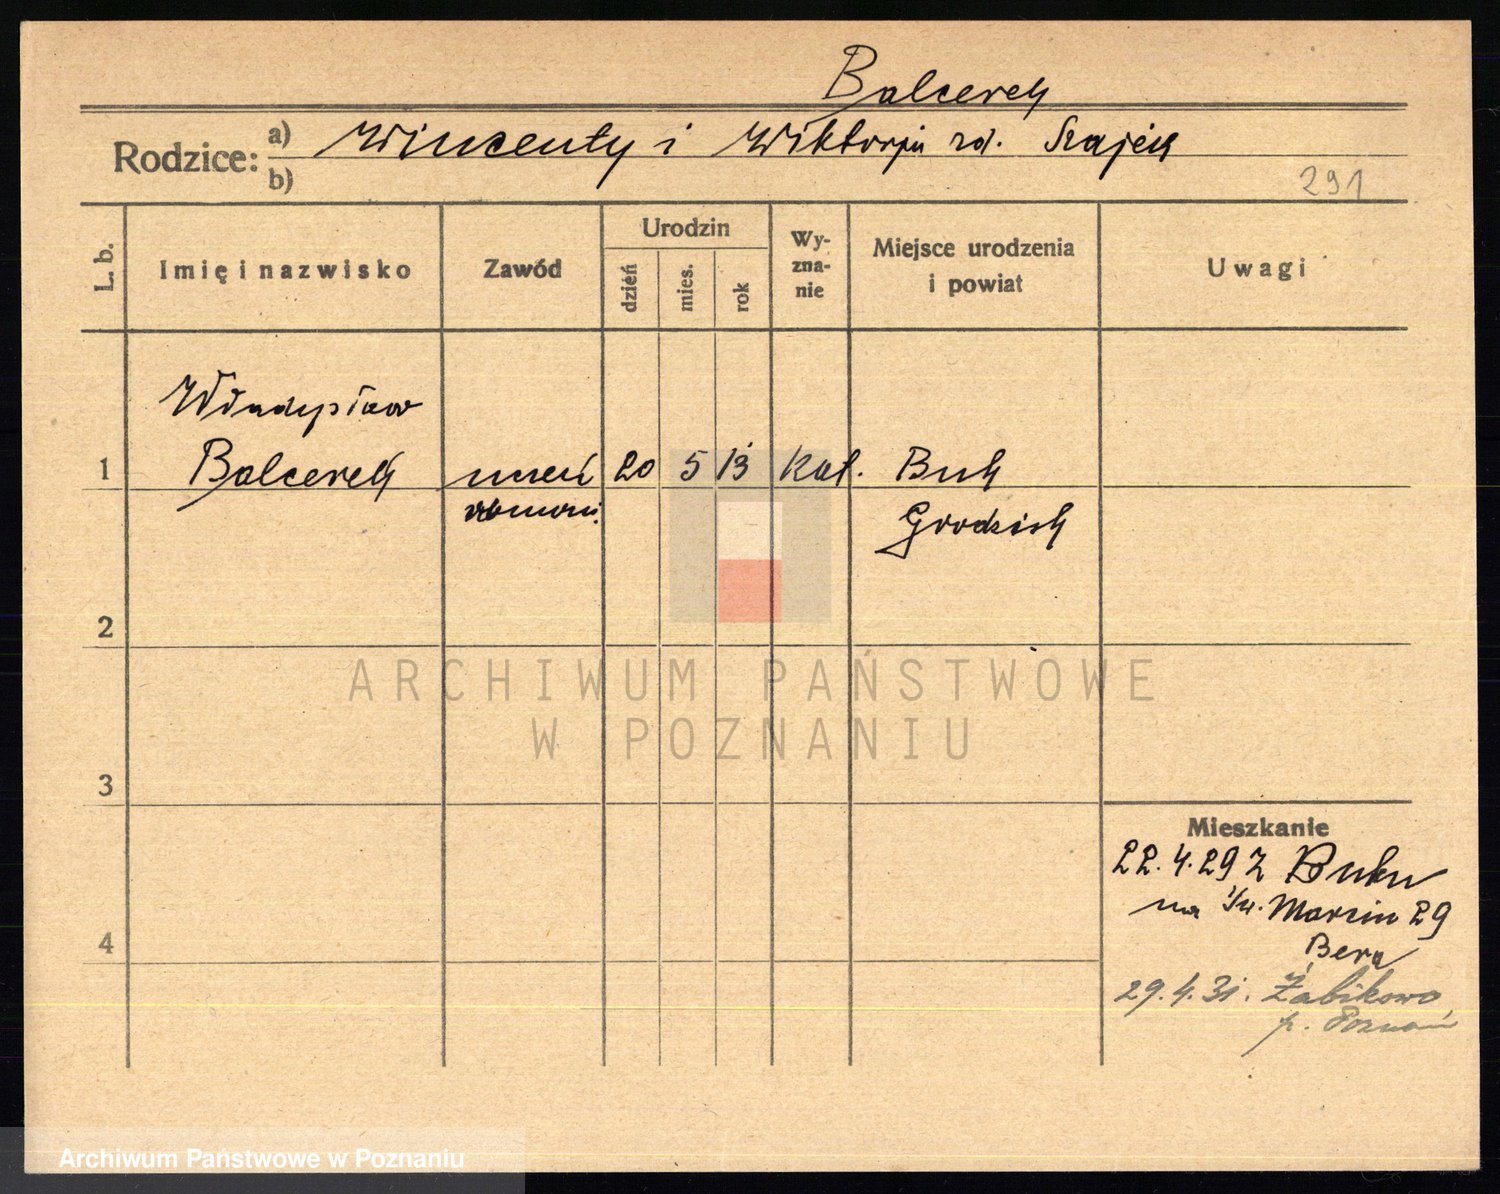 Balcerek
Rodzice: a) Wincenty i Wiktorja rd. Szajek
b)
291
L. b. Imię i nazwisko Zawód Urodzin dzień mies. rok Wy-zna-nie Miejsce urodzenia i powiat Uwagi
Władysław
1 Balcerek uczeń 20 5 13 Kat. Buk
Grodzisk
2
ARCHIWUM PAŃSTWOWE
W POZNANIU
3
Mieszkanie
22.4.29 z Buku
na Św. Marcin 29
4
29.4.31. Żabikowo
p. Poznań
Archiwum Państwowe w Poznaniu